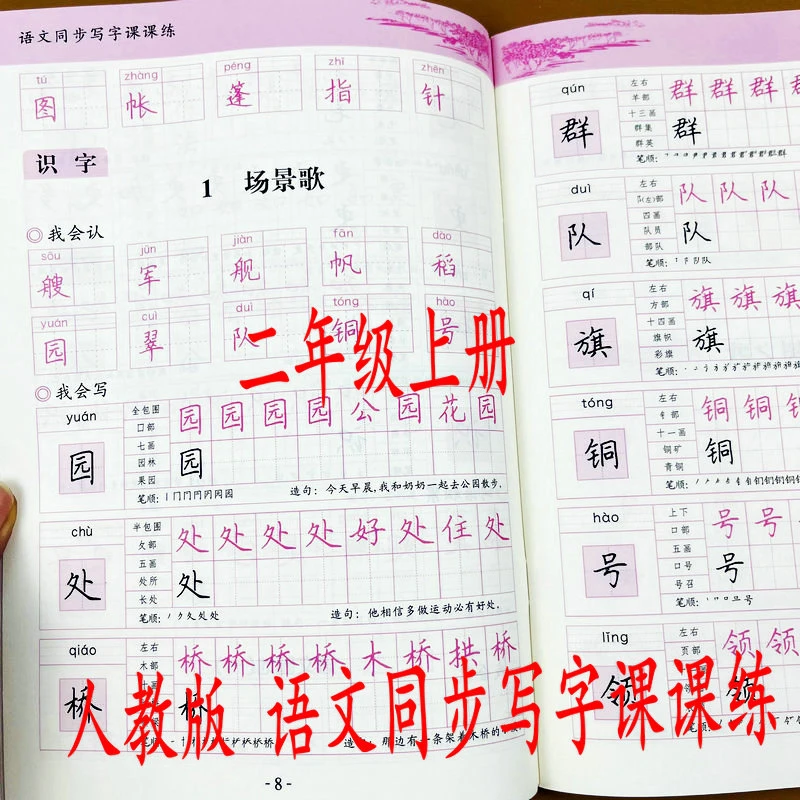 语文同步写字课课练
tú zhàng péng zhǐ zhēn
图 帐 蓬 指 针
识字
1 场景歌
◎我会认
sōu jūn jiàn fān dào
艘 军 舰 帆 稻
yuán cuì duì tóng hào
园 翠 队 铜 号
二年级上册
◎我会写
yuán
园
全包围
口部
七画
园林
果园
园 园 园 园 公 园 花 园
园
笔顺:
造句：今天早晨,我和奶奶一起去公园散步。
chù
处
半包围
夂部
五画
处所
长处
处 处 处 处 好 处 住 处
处
笔顺:
造句：他相信多做运动必有好处。
qiáo
桥
左右
木部
桥 桥 桥 桥 木 桥 拱 桥
桥
那边有一条架着木桥的
人教版 语文同步写字课课练
- 8 -
qún
群
左右
羊部
十三画
群集
群英
群 群 群 群
群
笔顺:
duì
队
左右
阝(左)部
四画
队员
部队
队 队 队
队
笔顺:
qí
旗
左右
方部
十四画
旗帜
彩旗
旗 旗 旗
旗
笔顺:
tóng
铜
左右
钅部
十一画
铜矿
青铜
铜 铜 铜
铜
笔顺:
hào
号
上下
口部
五画
口号
号召
号 号
号
笔顺:
lǐng
领
左右
页部
领 领
领